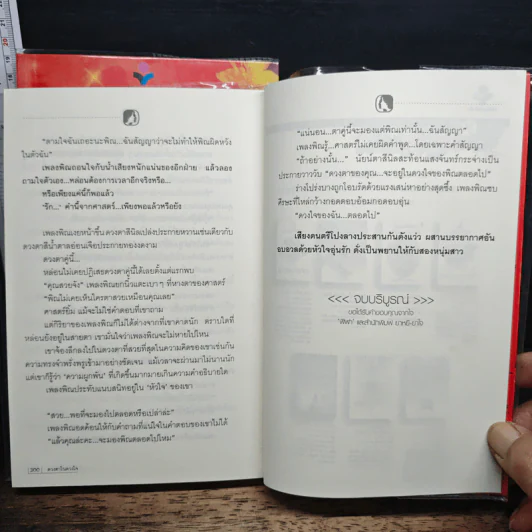 "ตามใจฉันเถอะนะพิณ...ฉันสัญญาว่าจะไม่ทำให้พิณผิดหวัง
ในตัวฉัน"
เพลงพิณถอนใจกับน้ำเสียงหนักแน่นของอีกฝ่าย แล้วลอง
ถามใจตัวเอง...หล่อนต้องการเวลาอีกจริงหรือ...
หรือเพียงแค่นี้ก็พอแล้ว
"รัก..." คำนี้จากศาสตร์...เพียงพอแล้วหรือยัง
เพลงพิณเงยหน้าขึ้น ดวงตาสีนิลเปล่งประกายหวานเช่นเดียวกับ
ดวงตาสีน้ำตาลอ่อนเจือประกายทองงดงาม
ดวงตาคู่นี้...
หล่อนไม่เคยปฏิเสธดวงตาคู่นี้ได้เลยตั้งแต่แรกพบ
"คุณสวยจัง" เพลงพิณยกนิ้วแตะเบาๆ ที่หางตาของศาสตร์
"พิณไม่เคยเห็นใครตาสวยเหมือนคุณเลย"
ศาสตร์ยิ้ม แม้จะไม่ใช่คำตอบที่เขาถาม
แต่กิริยาของเพลงพิณก็ไม่ได้ต่างจากที่เขาคาดนัก ตราบใดที่
หล่อนยังอยู่ในสายตา เขามั่นใจว่าเพลงพิณจะไม่หายไปไหน
เขาจ้องลึกลงไปในดวงตาที่สวยที่สุดในความคิดของเขาเช่นกัน
ความทรงจำพรั่งพรูเข้ามาอย่างชัดเจน แม้เวลาจะผ่านมาไม่นานนัก
แต่เขาก็รู้ว่า 'ความผูกพัน' ที่เกิดขึ้นมากมายเกินความคำอธิบายใด
เพลงพิณประทับแนบสนิทอยู่ใน 'หัวใจ' ของเขา
"สวย...พอที่จะมองไปตลอดหรือเปล่าล่ะ"
เพลงพิณอดค้อนให้กับคำถามที่แน่ใจในคำตอบของเขาไม่ได้
"แล้วคุณล่ะคะ...จะมองพิณตลอดไปไหม"
200 ดวงตวันดวงใจ
"แน่นอน...ตาคู่นี้จะมองแต่พิณเท่านั้น...ฉันสัญญา"
เพลงพิณรู้...ศาสตร์ไม่เคยผิดคำพูด...โดยเฉพาะคำสัญญา
"ถ้าอย่างนั้น..." นัยน์ตาสีนิลสะท้อนแสงจันทร์กระจ่างเป็น
ประกายวาววับ "ดวงตาของคุณ...จะอยู่ในดวงใจของพิณตลอดไป"
ร่างโปร่งบางถูกโอบรัดด้วยแรงเสน่หาอย่างสุดซึ้ง เพลงพิณซบ
ศีรษะที่ไหล่กว้างกอดตอบอ้อมกอดอบอุ่น
"ดวงใจของฉัน...ตลอดไป"
เสียงดนตรีโปงลางประสานกันดังแว่ว ผสานบรรยากาศอัน
อบอวลด้วยหัวใจอุ่นรัก ดั่งเป็นพยานให้กับสองหนุ่มสาว
<<< จบบริบูรณ์ >>>